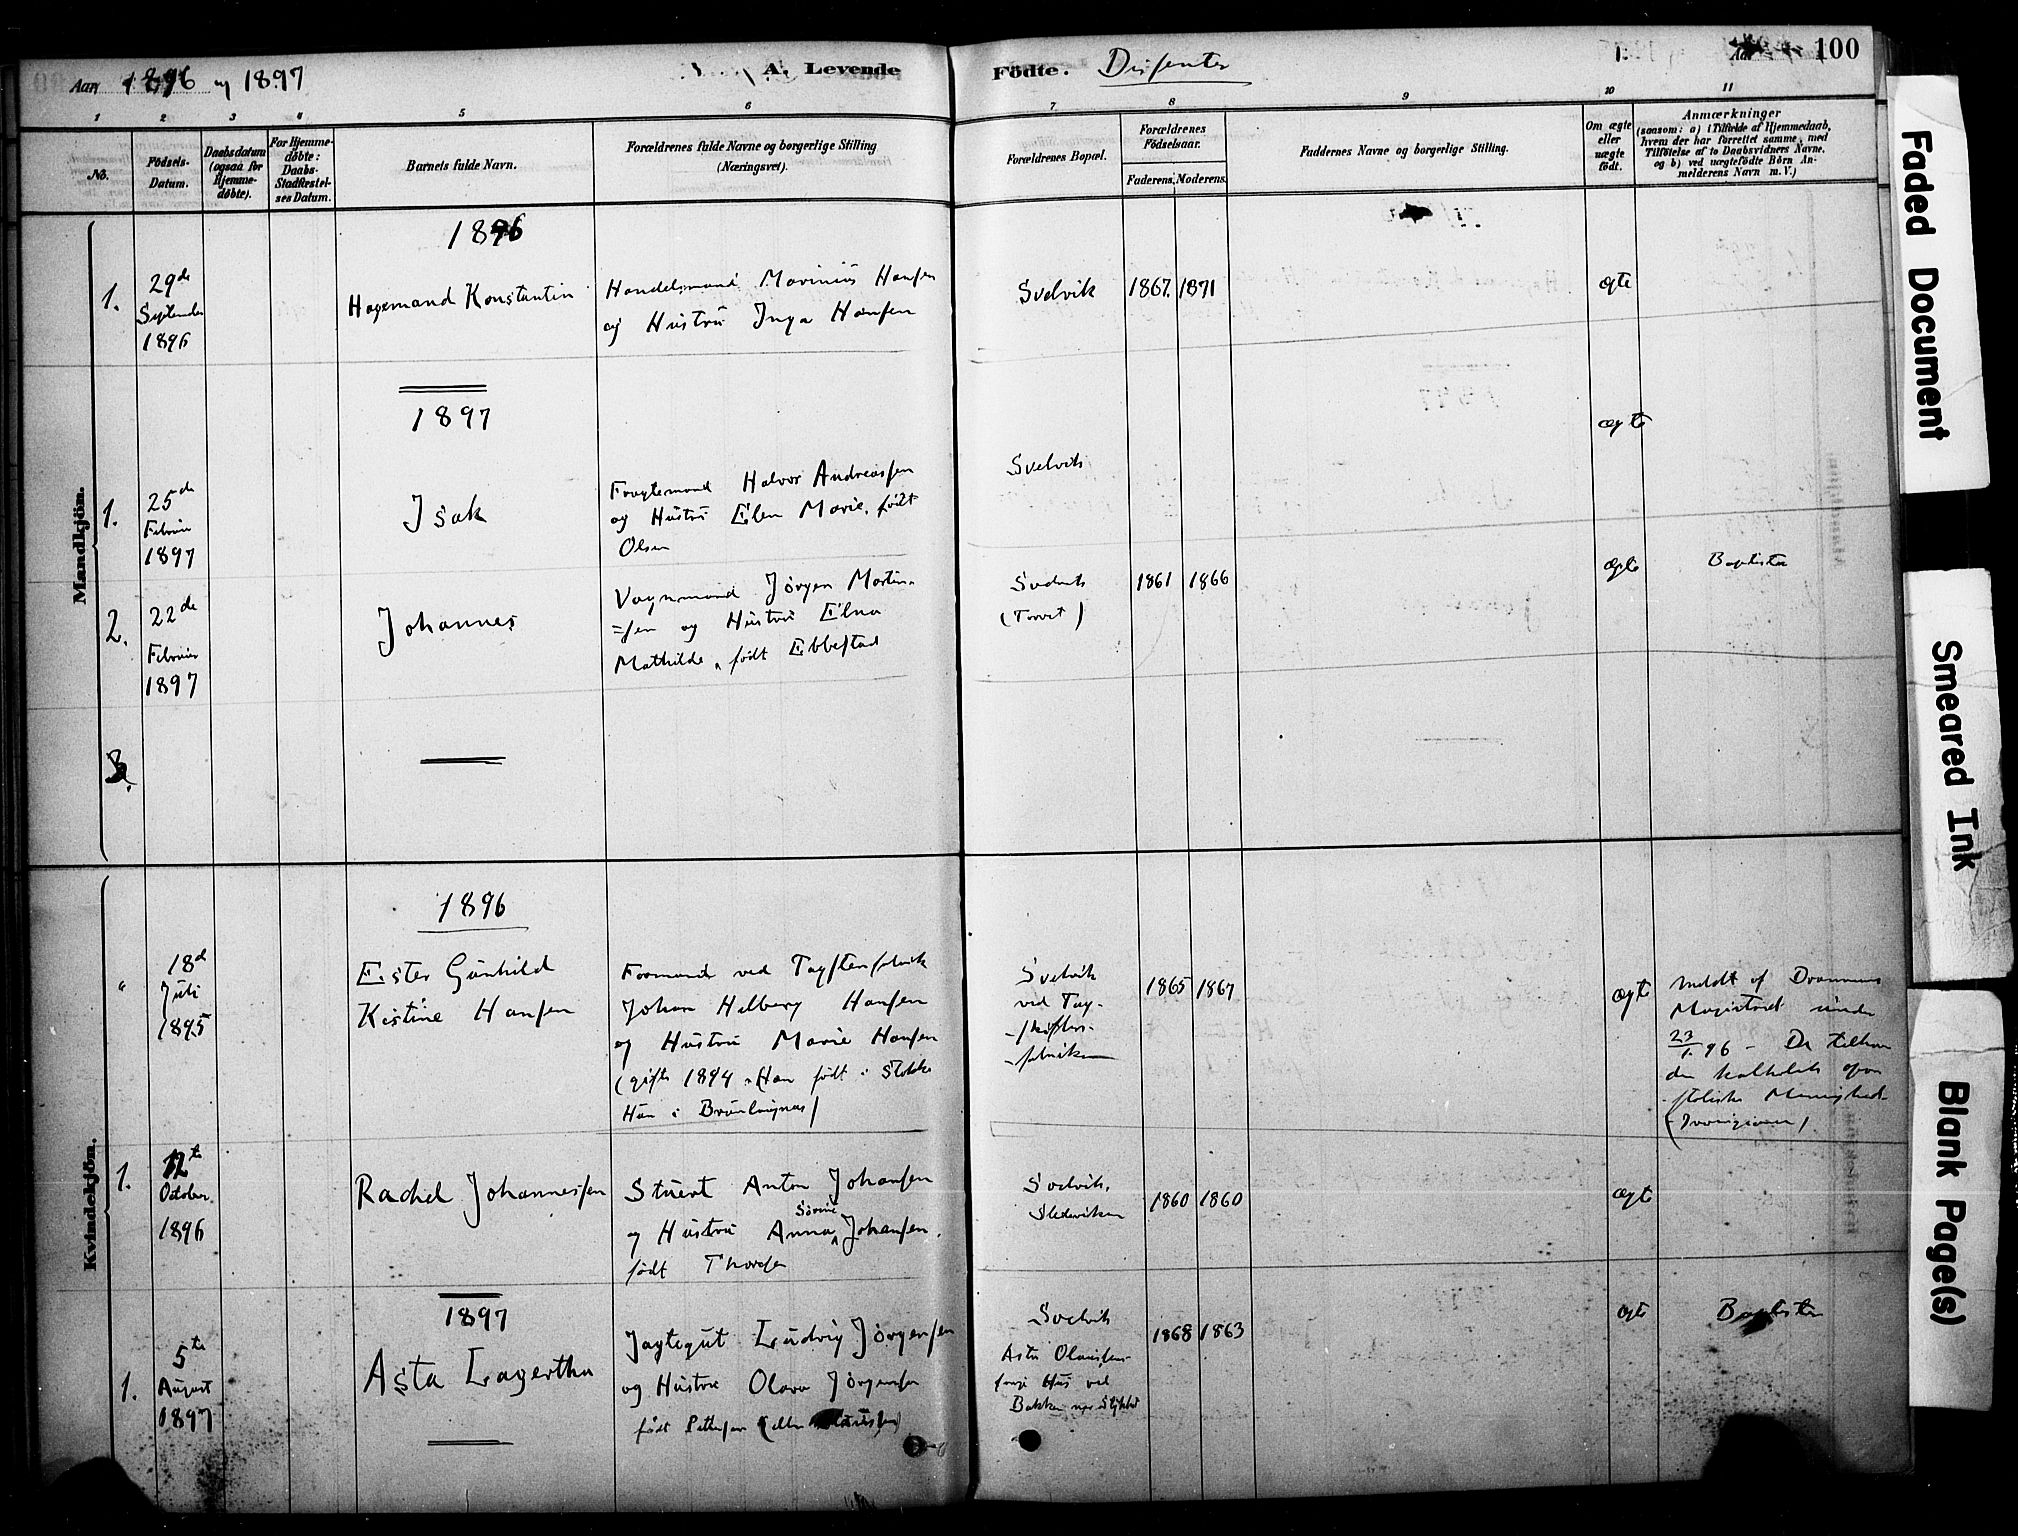 Aar 1896 og 1897
A. Levende Födte. Disenter
100
1 2 3 4 5 6 7 8 9 10 11
No.
Födsels-Datum.
Daabsdatum (ogsaa for Hjemme-döbte).
For Hjemme-döbte: Daabs-Stadfæstel-ses Datum.
Barnets fulde Navn.
Forældrenes fulde Navne og borgerlige Stilling (Næringsvei).
Forældrenes Bopæl.
Forældrenes Födselsaar.
Faderens. Moderens.
Faddernes Navne og borgerlige Stilling.
Om ægte eller uægte födt.
Anmærkninger
(saasom: a) i Tilfælde af Hjemmedaab, hvem der har forrettet samme, med Tilföielse af to Daabsvidners Navne, og b) ved uægtefödte Börn An-melderens Navn m. V.)
Mandkjön.
1896
1. 29de September 1896
Hagemand Konstantin
Handelsmand Marinius Hansen
og Hustru Inga Hansen
Svelvik 1867. 1871 ægte
1897
1. 25de Februar 1897
Isak
Fragtemand Halvor Andreassen
og Hustru Elen Marie, født
Olsen
Svelvik ægte
2. 22de Februar 1897
Johannes
Vognmand Jørgen Martin-
=sen og Hustru Elna
Mathilde, født Ebbestad
Svelvik (Torvet) 1861 1866 ægte Baptister
3.
Kvindekjön.
1896
" 18d Juli 1895
Ester Gunhild
Kistine Hansen
Formand ved Tagstenfabrik
Johan Helberg Hansen
og Hustru Marie Hansen
(gifte 1894. Han født i Stokke
Hun i Brunlagnæs)
Svelvik
ved Tag-
-skifter-
-fabriken
1865 1867 ægte
Meldt af Drammens
Magistrat under
23/1. 96 - De tilhører
den katholsk apo-
-stoliske Menighed
(Irvingianer)
1. 12te October 1896
Rachel Johannessen
Stuert Anton Johansen
og Hustru Anna Sørine Johansen,
født Thorsen
Svelvik, 1860 1860 ægte
1897
1. 5te August 1897
Asta Lagertha
Jagtegut Ludvig Jørgensen
og Hustru Olava Jørgensen
født Pettersen (eller
Svelvik
1868 1863 ægte Baptister
Hus ved
Bakken
Faded Document
Smeared Ink
Blank Page(s)